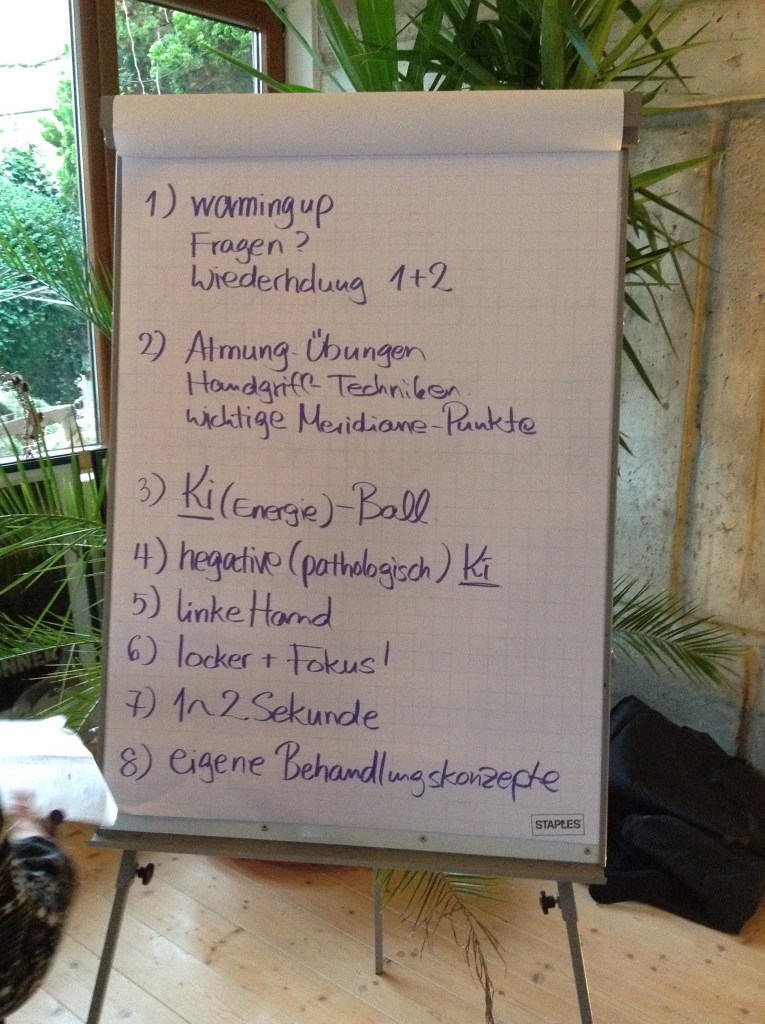 1) warming up
Fragen?
Wiederholung 1+2
2) Atmung-Übungen
Handgriff-Techniken
wichtige Meridiane-Punkte
3) Ki (Energie)-Ball
4) negative (pathologisch) Ki
5) linke Hand
6) locker + Fokus!
7) 1~2 Sekunde
8) eigene Behandlungskonzepte
STAPLES